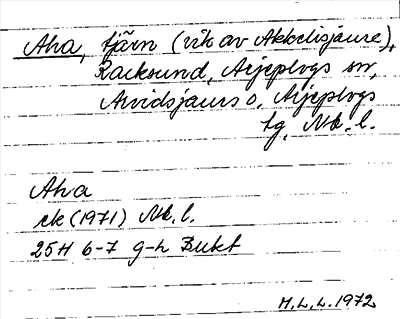 Aha, tjärn (vik av Akkelisjaure),
Racksund, Arjeplogs sn,
Arvidsjaurs o. Arjeplogs
tg, Nb. l.
Aha
ek (1971) Nb. l.
25H 6-7 g-h Bukt
M.L.L. 1972